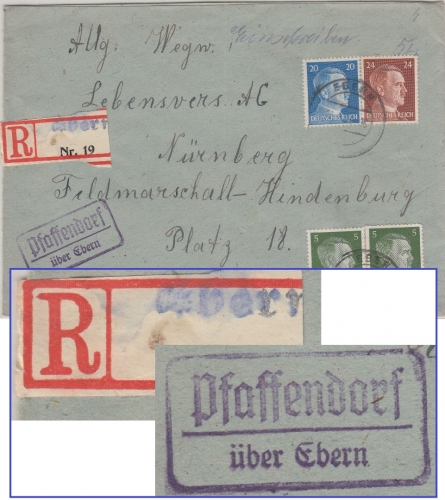 Einschreiben
Allg: Wegw.:
20 20 24 24
DEUTSCHES REICH DEUTSCHES REICH
EBERN
Lebensvers. AG
R Ebern
Nr. 19
Nürnberg
Feldmarschall-Hindenburg
Platz 18.
Pfaffendorf
über Ebern
5 5
EBERN
R Ebern
Pfaffendorf
über Ebern